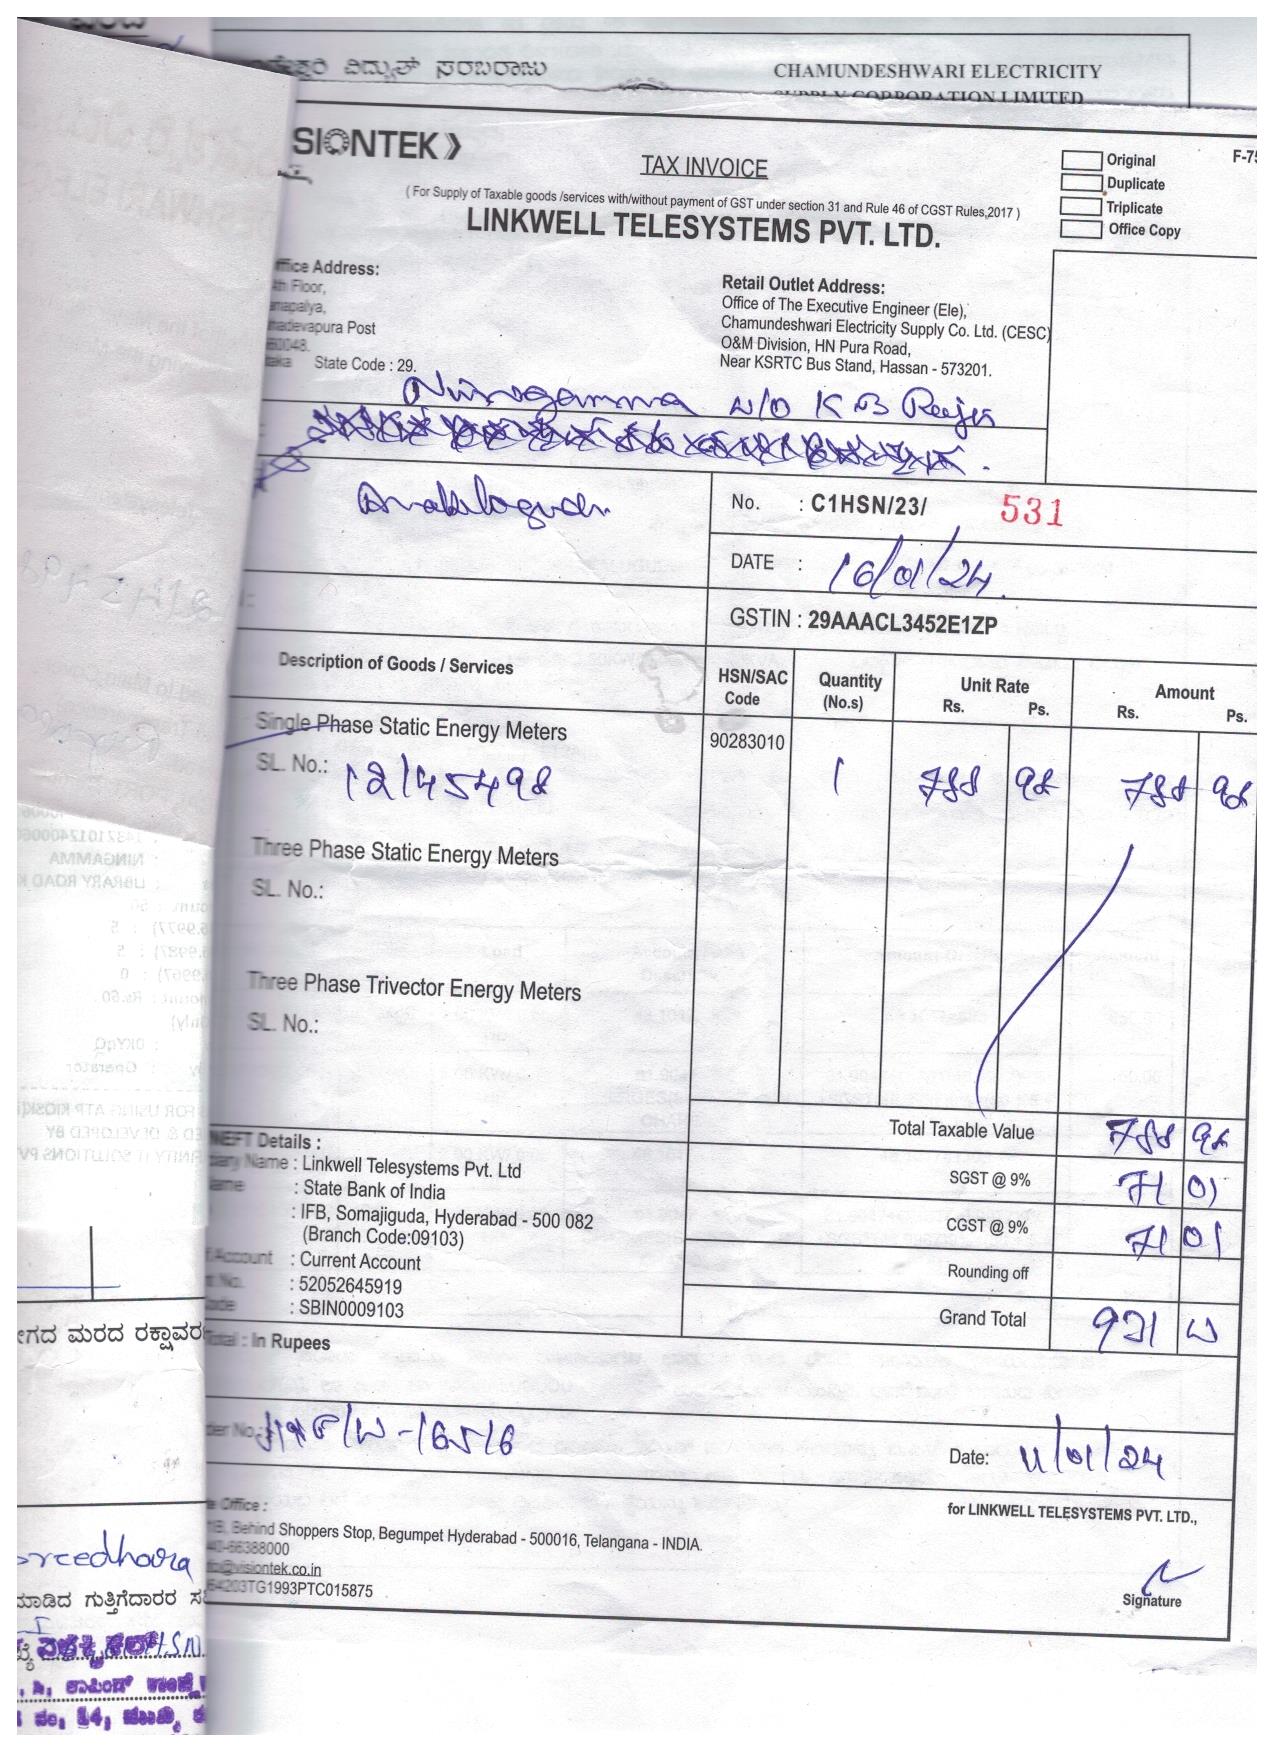 ವಿದ್ಯುತ್ ಸರಬರಾಜು
CHAMUNDESHWARI ELECTRICITY
SUPPLY CORPORATION LIMITED
SIONTEK
TAX INVOICE
Original
Duplicate
Triplicate
Office Copy
F-75
( For Supply of Taxable goods /services with/without payment of GST under section 31 and Rule 46 of CGST Rules,2017 )
LINKWELL TELESYSTEMS PVT. LTD.
ffice Address:
4th Floor,
adevapura Post
60048.
State Code : 29.
Retail Outlet Address:
Office of The Executive Engineer (Ele),
Chamundeshwari Electricity Supply Co. Ltd. (CESC)
O&M Division, HN Pura Road,
Near KSRTC Bus Stand, Hassan - 573201.
Ningamma W/O K B Raju
No. : C1HSN/23/ 531
DATE : 10/01/24.
GSTIN : 29AAACL3452E1ZP
Description of Goods / Services
HSN/SAC Code
Quantity (No.s)
Unit Rate Rs. Ps.
Amount Rs. Ps.
Single Phase Static Energy Meters
90283010
SL. No.: 12145498
1 788 98 788 98
Three Phase Static Energy Meters
SL. No.:
Three Phase Trivector Energy Meters
SL. No.:
Total Taxable Value 788 98
SGST @ 9% 71 01
CGST @ 9% 71 01
Rounding off
Grand Total 931 00
NEFT Details :
iary Name : Linkwell Telesystems Pvt. Ltd
ame : State Bank of India
: IFB, Somajiguda, Hyderabad - 500 082
(Branch Code:09103)
f Account : Current Account
t No. : 52052645919
ode : SBIN0009103
Total : In Rupees
der No.
16516
Date: 11/01/24
for LINKWELL TELESYSTEMS PVT. LTD.,
e Office :
Behind Shoppers Stop, Begumpet Hyderabad - 500016, Telangana - INDIA.
40-66388000
@visiontek.co.in
64203TG1993PTC015875
Signature
ಗದ ಮರದ ರಕ್ಷಾವರ
sreedhara
ಮಾಡಿದ ಗುತ್ತಿಗೆದಾರರ ಸ